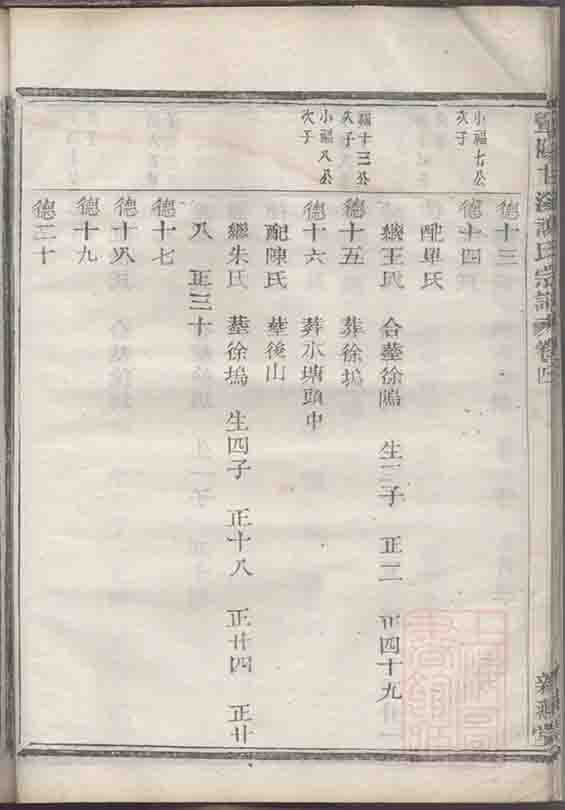 氏宗譜 卷四
德十三
小福七公
次子
德十四
配單氏
繼王氏 合墓徐塢 生二子 正二 正四十九
福十三公
次子
德十五 葬徐塢
小福八公
次子
德十六 葬水塘頭中
配陳氏 墓後山
繼朱氏 墓徐塢 生四子 正十八 正廿四 正廿
八 正三十
德十七
德十八
德十九
德二十